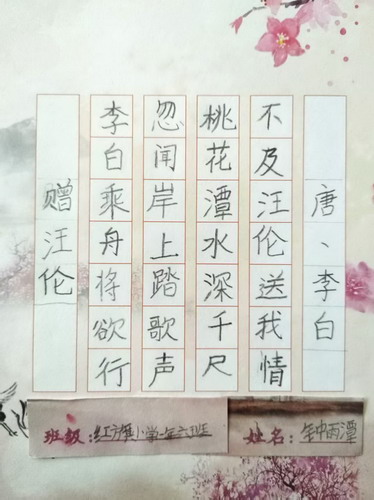 赠汪伦
李白乘舟将欲行
忽闻岸上踏歌声
桃花潭水深千尺
不及汪伦送我情
唐、李白
班级:红旗小学一年六班
姓名:钟雨潭